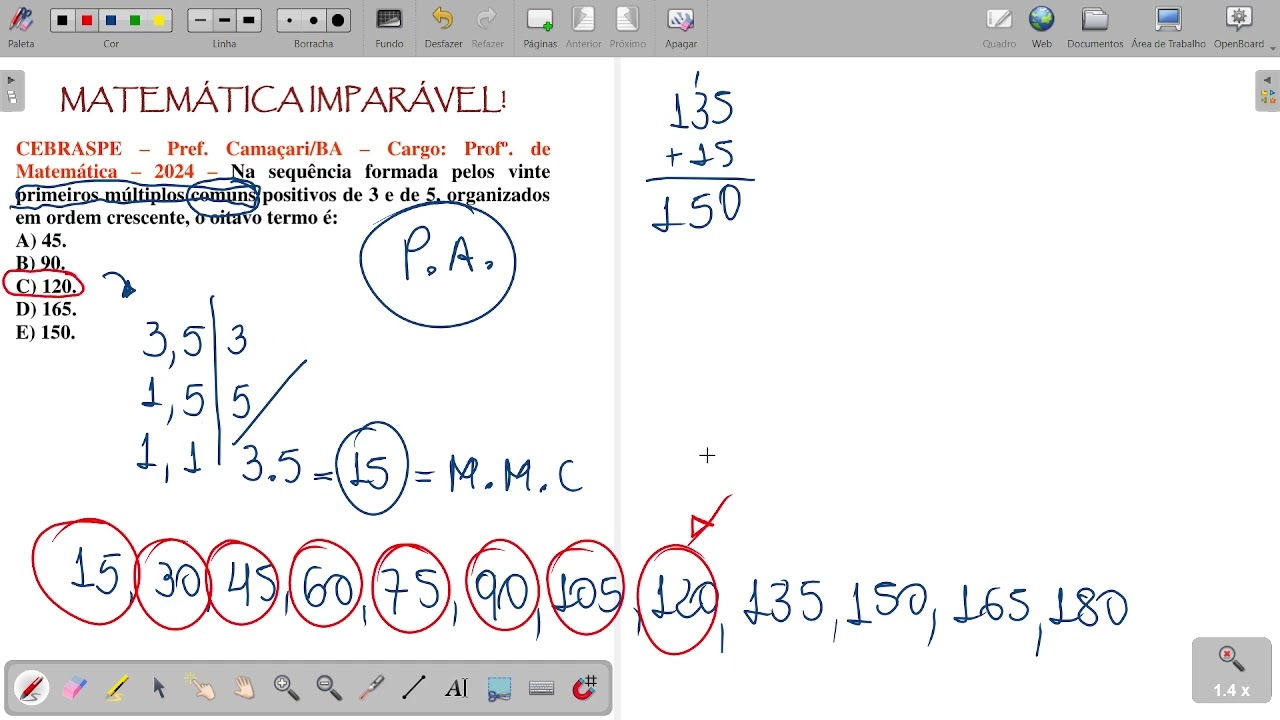 Paleta
Cor
Linha
Borracha
Fundo
Desfazer
Refazer
Páginas
Anterior
Próximo
Apagar
Quadro
Web
Documentos
Área de Trabalho
OpenBoard
MATEMÁTICA IMPARÁVEL!
CEBRASPE – Pref. Camaçari/BA – Cargo: Profº. de
Matemática – 2024 – Na sequência formada pelos vinte
primeiros múltiplos comuns positivos de 3 e de 5, organizados
em ordem crescente, o oitavo termo é:
A) 45.
B) 90.
C) 120.
D) 165.
E) 150.
P.A.
3,5 3
1,5 5
1,1 3.5 = 15 = M.M.C
15, 30, 45, 60, 75, 90, 105, 120, 135, 150, 165, 180
1
135
+15
150
AI
1.4 x